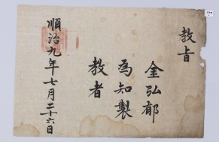 教旨
金弘郁
為知製
教者
順治九年七月二十六日